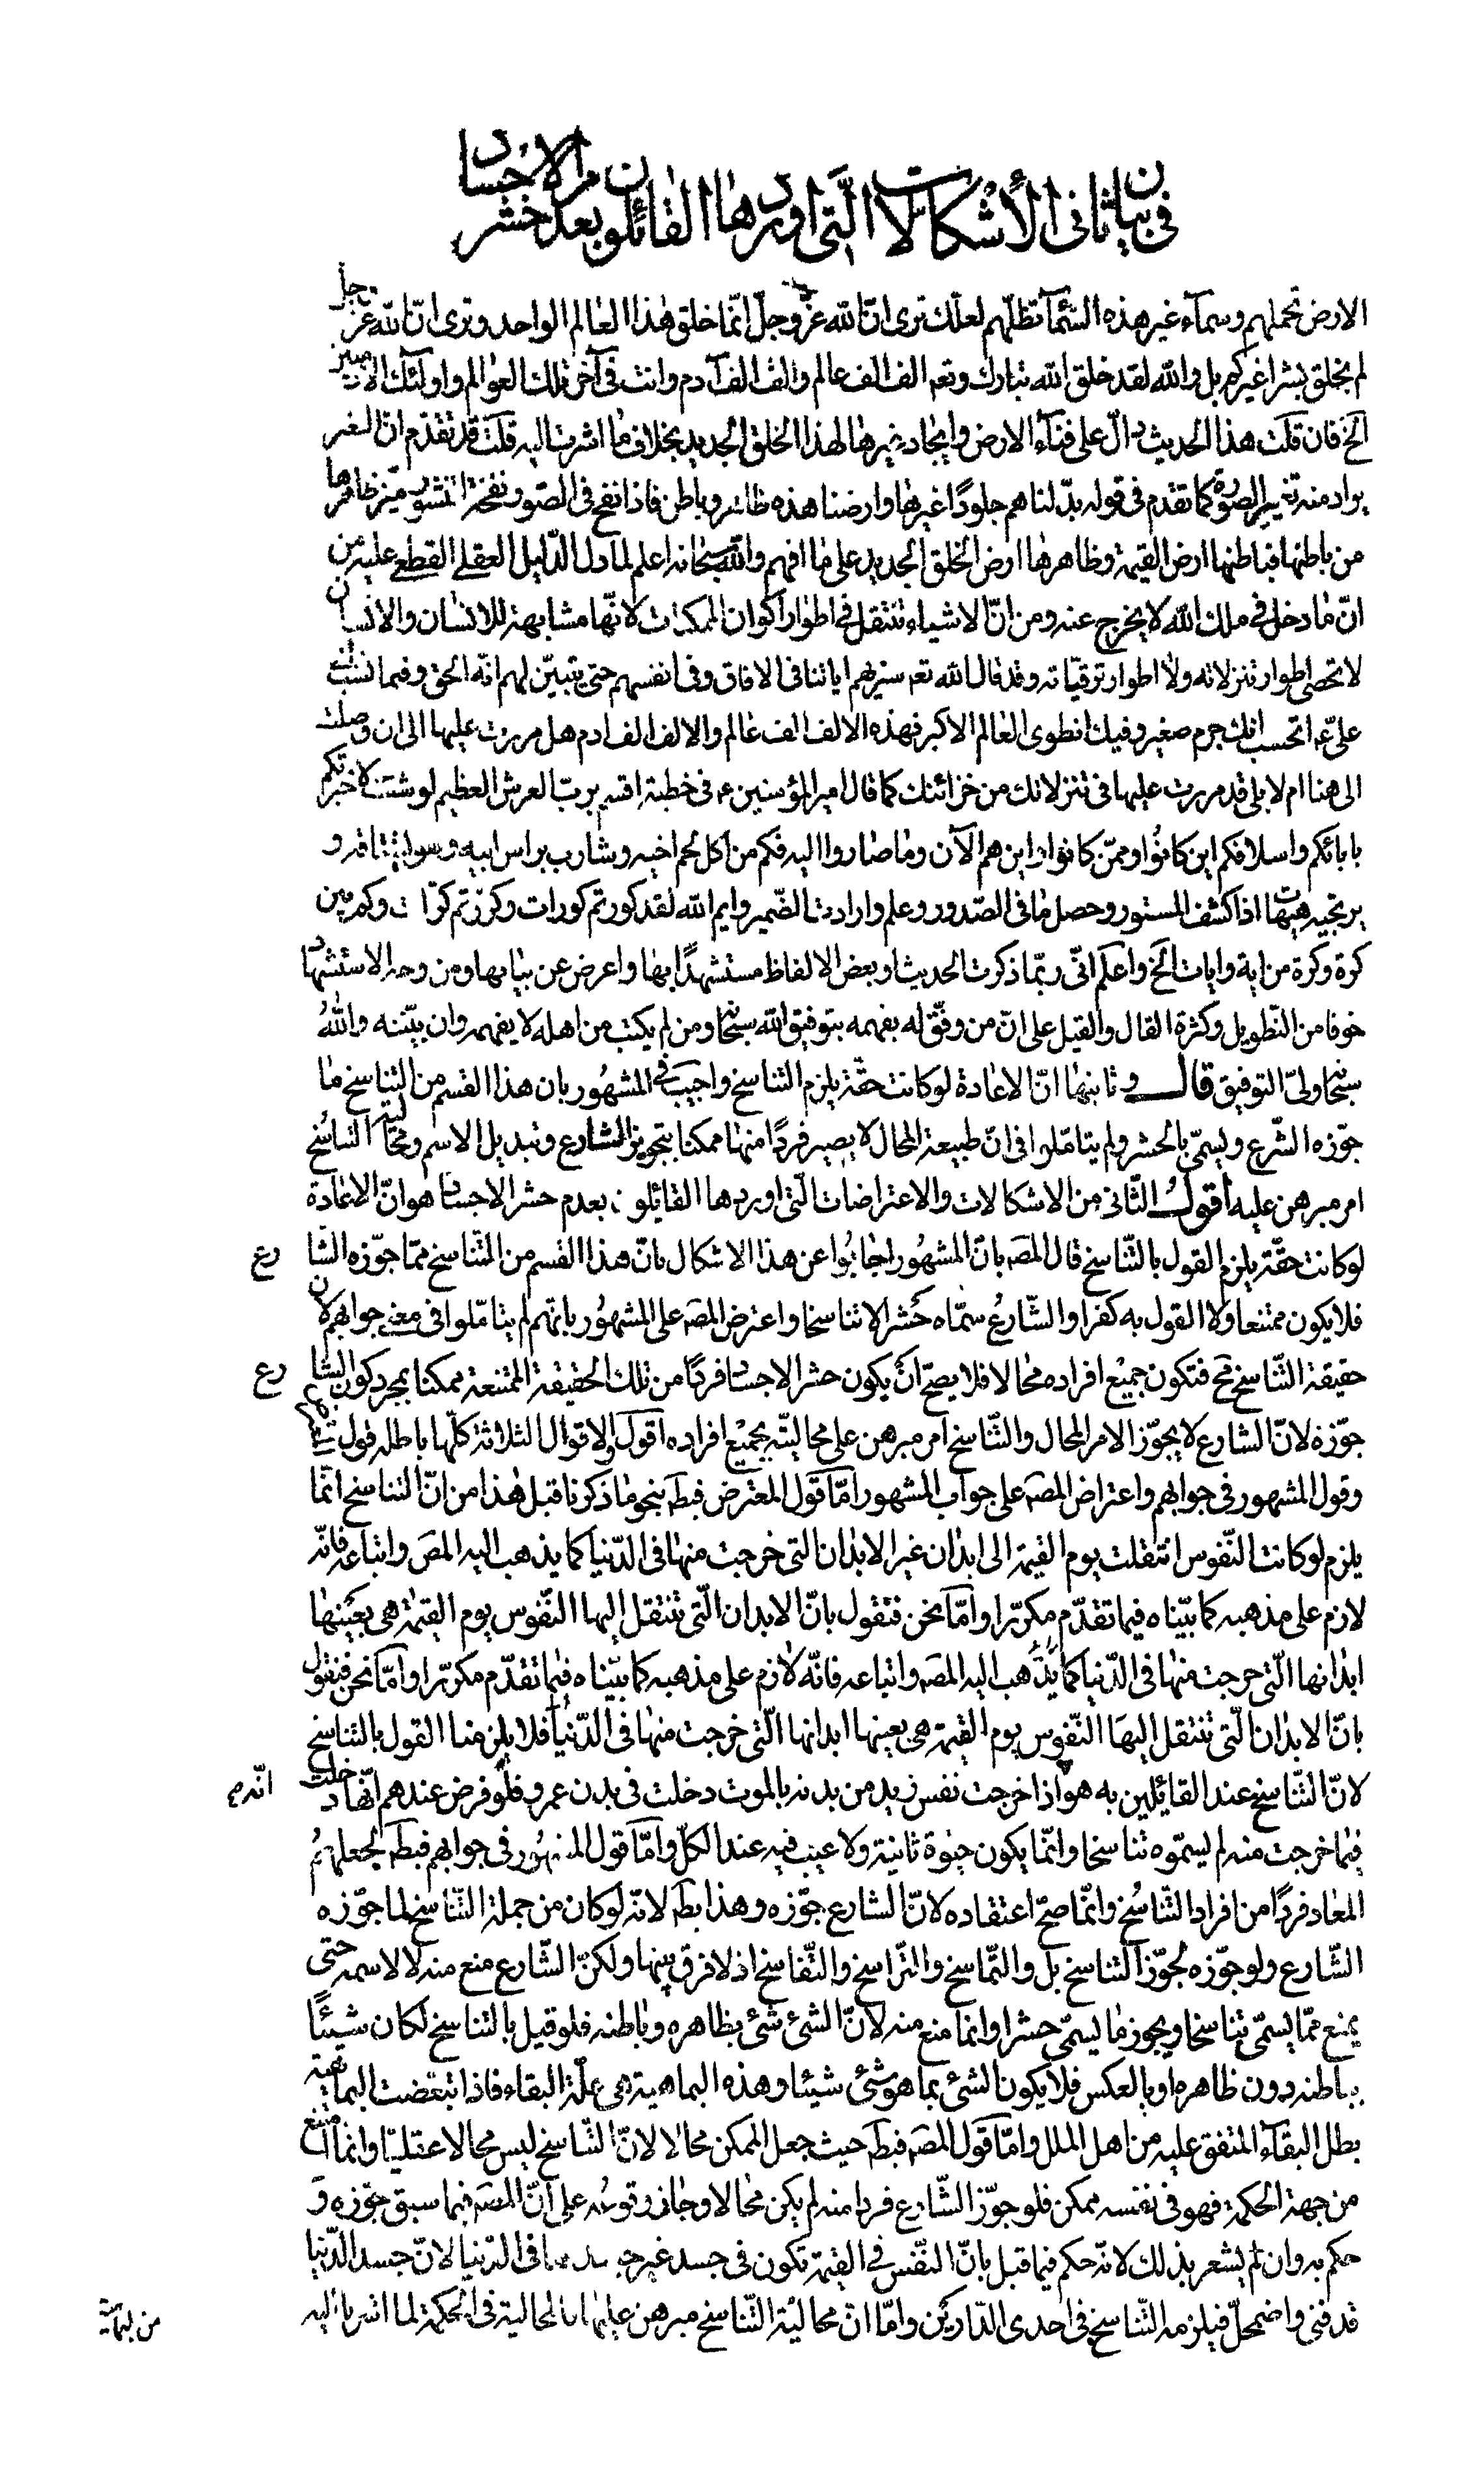 في بيان ثاني الأشكالات التي اوردها القائلون بعدم حشر الاجساد
الارض تحملهم وسمآء غير هذه السّمآء تظلّهم لعلّك ترى انّ الله عزّ وجلّ انّما خلق هذا العالم الواحد وترى انّ الله عزّ وجل
لم يخلق بشرا غيركم بل والله لقد خلق الله تبارك وتعہ الف الف عالم والف الف آدم وانت في آخر تلك العوالم واولئك الادميين
الخ فان قلت هذا الحديث دالّ على فنآء الارض وايجاد غيرها لهذا الخلق الجديد بخلاف ما اشرت اليه قلت قد تقدّم انّ الغير
يراد منه تغيير الصورة كما تقدم في قوله بدّلناهم جلودًا غيرها وارضنا هذه ظاهر وباطن فاذا نفخ في الصّور نفخة النشور ميّز ظاهرها
من باطنها فباطنها ارض القيمة وظاهرها ارض الخلق الجديد على ما افهم والله سبحانه اعلم لما دل الدّليل العقلي القطعي عليه من
انّ ما دخل في ملك الله لا يخرج عنه ومن انّ الاشياء تنتقل في اطوار اكوان الممكنات لانّها مشابهة للانسان والانسان
لا تحصى اطوار تنزلاته ولا اطوار ترقياته وقد قال الله تعہ سنريهم اياتنا في الافاق وفي انفسهم حتى يتبيّن لهم انّه الحق وفيما نسب الى
عليّ عہ اتحسب انك جرم صغير وفيك انطوى العالم الاكبر فهذه الالف الف عالم والالف الف ادم هل مررت عليها الى ان وصلت
الى هنا ام لا بلى قد مررت عليها في تنزلاتك من خزائنك كما قال امير المؤمنين عہ في خطبة اقسم برب العرش العظيم لو شئت لاخبرتكم
بابائكم واسلافكم اين كانُوا وممّن كانوا واين هم الآن وما صاروا اليه فكم من اكل لحم اخيه وشارب براس ابيه وهو يشتاقه و
يرتجيه هيهات اذا كشف المستور وحصل ما في الصّدور وعلم واردات الضّمير وايم الله لقد كورتم كورات وكررتم كرّات وكم من بين
كرة وكرة من اية وايات الخ واعلم انّي ربّما ذكرت الحديث او بعض الالفاظ مستشهدًا بها واعرض عن بيانها ومن وجه الاستشهاد
خوفا من التّطويل وكثرة القال والقيل على انّ من وفّق له يفهمه بتوفيق الله سبحانه ومن لم يكتب من اهله لا يفهمه وان بيّنه واللهُ
سبحانه وليّ التوفيق قال وثانيها انّ الاعادة لو كانت حقّة يلزم التّناسخ واجيب في المشهُور بان هذا القسم من التّناسخ ما
جوّزه الشّرع ويسمّى بالحشر ولم يتامّلوا في انّ طبيعة المحال لا يصير فردًا منها ممكنا بتجويز الشارع وتبديل الاسم ومحاليّة التّناسُخ
امر مبرهن عليه أقولُ الثّاني من الاشكالات والاعتراضات الّتي اوردها القائلون بعدم حشر الاجساد هو انّ الاعادة
لو كانت حقّة يلزم القول بالتّناسخ قال المصہ بانّ المشهُور اجابُوا عن هذا الاشكال بانّ هذا القسم من التّناسخ ممّا جوّزه الشارع
فلا يكون ممتنعا ولا القول به كفرا والشّارعُ سمّاه حَشرا لا تناسخا واعترض المصہ على المشهُور بانّهم لم يتامّلوا في معنى جوابهم لان
حقيقة التّناسخ مح فتكون جميْع افراده محالا فلا يصحّ انْ يكون حشر الاجساد فردًا من تلك الحقيقة الممتنعة ممكنا بمجرد كون الشارع
جوّزه لانّ الشارع لا يجوّز الامر المحال والتّناسخ امر مبرهن على محاليّته بجميْع افراده اقول والاقوال الثلاثة كلّها باطلہ قول المعترض
وقول المشهور في جوابهم واعتراض المصہ على جواب المشهور امّا قول المعترض فبطہ بنحو ما ذكرنا قبل هذا من انّ التناسخ انّما
يلزم لو كانت النّفوس انتقلت يوم القيمة الى ابدان غير الابدان التي خرجت منها في الدّنيا كما يذهب اليه المصہ واتباعه فانّه
لازم على مذهبه كما بيّناه فيما تقدّم مكرّرا وامّا نحن فنقول بانّ الابدان الّتي تنتقل إليها النّفوس يوم القيمة هي بعينها
ابدانها الّتي خرجت منها في الدّنيا كما يذهب اليه المصہ واتباعه فانّه لازم على مذهبه كما بيّناه فيما تقدّم مكرّرا وامّا نحن فنقول
بانّ الابدان الّتي تنتقل إليها النّفوس يوم القيمة هي بعينها ابدانها الّتي خرجت منها في الدّنيا فلا يلزمنا القول بالتّناسخ
لانّ التّناسخ عند القائلين به هو اذا خرجت نفس زيد من بدنه بالموت دخلت في بدن عمرو فلو فرض عندهم انّها دخلت
فيما خرجت منه لم يسمّوه تناسخا وانّما يكون حيٰوة ثانية ولا عيب فيه عند الكلّ وامّا قول المشهُور في جوابهم فبطہ لجعلهمُ
المعاد فردًا من افراد التّناسُخ وانّما صحّ اعتقاده لانّ الشارع جوّزه وهذا بطہ لانّه لو كان من جملة التّناسخ لما جوّزه
الشّارع ولو جوّزه لجوّز التناسخ بل والتّماسخ والتّراسخ والتّفاسخ اذ لا فرق بينها ولكنّ الشّارع منع منه لا لاسمه حتى
يمنع ممّا يسمّى تناسخا ويجوز ما يسمّى حشرا وانّما منع منه لانّ الشئ شئ بظاهره وباطنه فلو قيل بالتناسخ لكان شيئًا
بباطنه دون ظاهره او بالعكس فلا يكون الشئ بما هو شئ شيئا وهذه البماهية هي علّة البقاء فاذا تبعّضت البماهية
بطل البقآء المتفق عليه من اهل الملل وامّا قول المصہ فبطہ حيث جعل الممكن محالا لانّ التّناسخ ليس محالا عقليّا وانّما امتنع
من جهة الحكمة فهو في نفسه ممكن فلو جوّز الشّارع فردا منه لم يكن محالا وجاز وقوعه على انّ المصہ فيما سبق جوّزه و
حكم به وان لم يشعر بذلك لانّه حكم فيما قبل بانّ النّفس في القيمة تكون في جسد غير في الدّنيا لانّ جسد الدّنيا
قد فنى واضمحلّ فيلزمه التّناسخ في احدى الدّارين وامّا انّ محاليّة التّناسخ مبرهن عليها بالمحالية في الحكمة لما اشرنا اليه
من بماهية